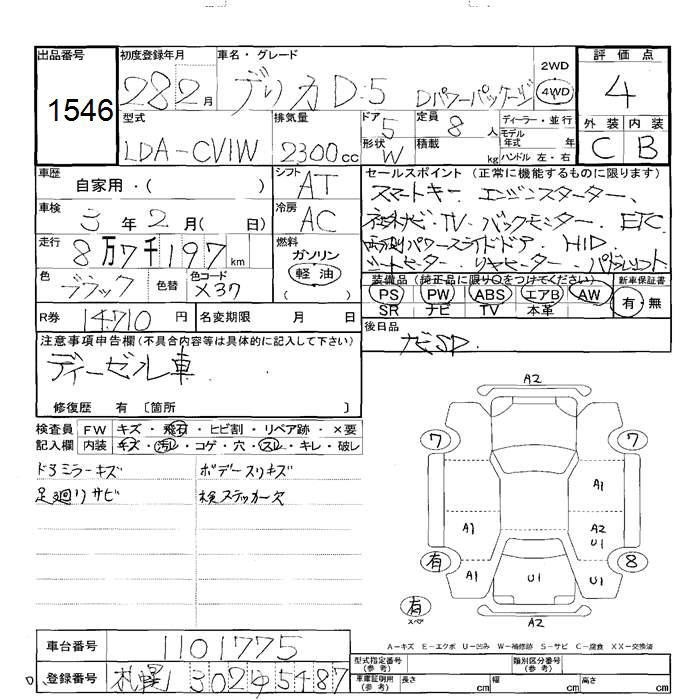 出品番号 1546
初度登録年月 28 2月
車名・グレード デリカD:5 Dパワーパッケージ
2WD 4WD
評価点 4
外装 C 内装 B
型式 LDA-CV1W
排気量 2300cc
ドア 5 形状 W
定員 8人
積載 kg
ディーラー・並行
モデル年式 年
ハンドル 左・右
車歴 自家用・( )
シフト AT
車検 3年2月( 日)
冷房 AC
走行 8万7千197km
燃料 ガソリン 軽油 ( )
色 ブラック 色替 色コード X37
R券 14710円 名変期限 月 日
セールスポイント (正常に機能するものに限ります)
スマートキー、エンジンスターター、
ナビ・TV・バックモニター、ETC
両側パワースライドドア、HID
シートヒーター・リヤヒーター・パドルシフト
装備品 (純正品に限り○をつけてください)
PS PW ABS エアB AW
SR ナビ TV 本革
新車保証書 有・無
後日品 ナビSD.
注意事項申告欄(不具合内容等は具体的に記入して下さい)
ディーゼル車
修復歴 有 〔箇所 〕
検査員 FW キズ・飛石・ヒビ割・リペア跡・×要
記入欄 内装 キズ・汚レ・コゲ・穴・スレ・キレ・破レ
ドミラーキズ ボデースリキズ
足廻りサビ 検ステッカー欠
A2
7 7
A1
A1 A2
U1
有 8
A1 U1 U1
有 スペア
A2
A-キズ E-エクボ U-凹み W-補修跡 S-サビ C-腐食 XX-交換済
車台番号 1101775
登録番号 札幌 302 そ 5487
型式指定番号(参考) 類別区分番号(参考)
車庫証明用(参考) 長さ cm 幅 cm 高さ cm